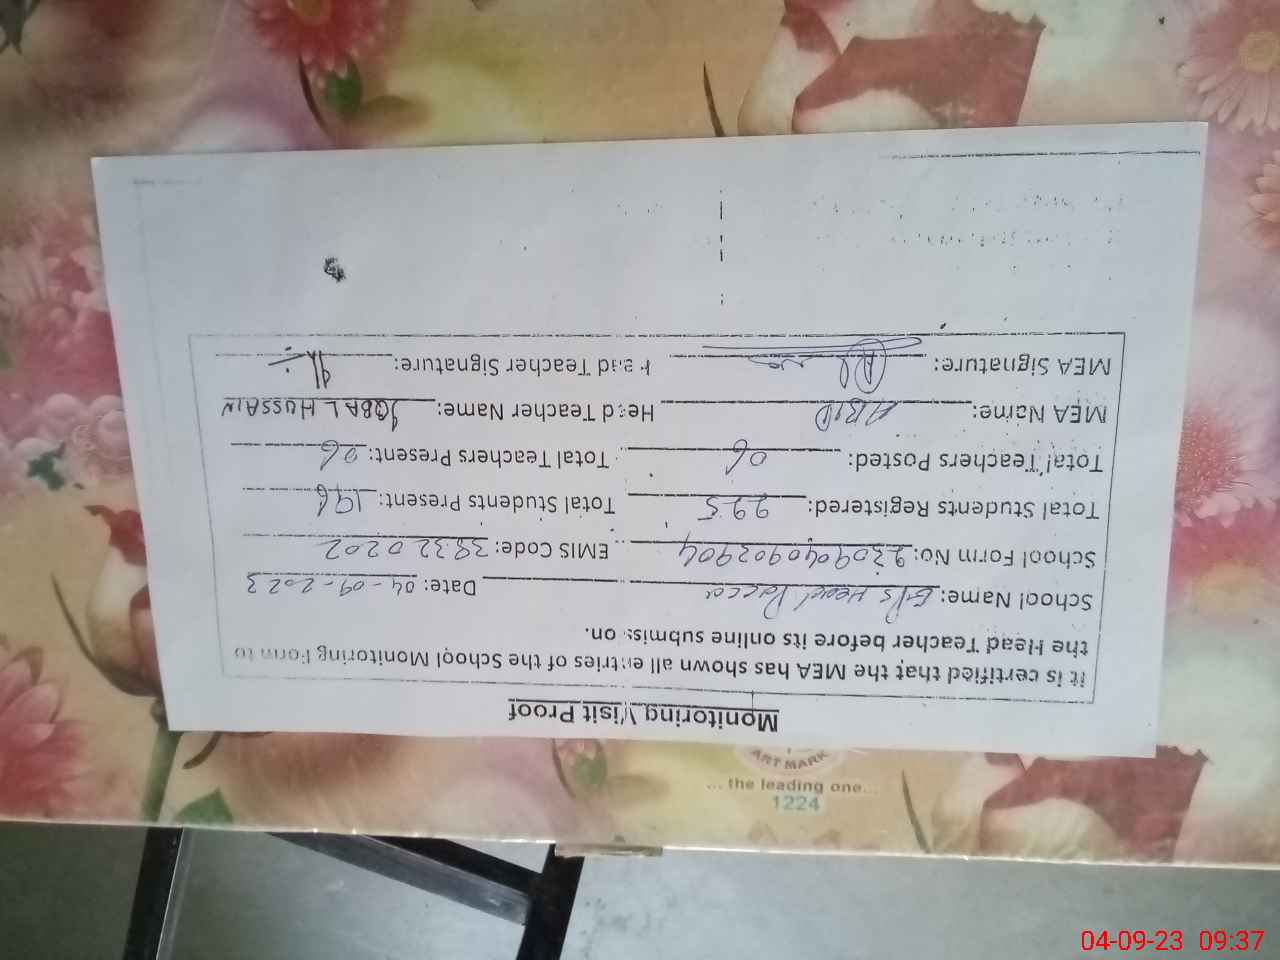 Monitoring Visit Proof
it is certified that the MEA has shown all entries of the School Monitoring Form to
the Head Teacher before its online submission.
School Name: GPS Head Pacca Date: 04-09-2023
School Form No: EMIS Code: 38320202
Total Students Registered: 225 Total Students Present: 196
Total Teachers Posted: 06 Total Teachers Present: 06
MEA Name: ABID Head Teacher Name: IQBAL HUSSAIN
MEA Signature: Head Teacher Signature:
ART MARK
... the leading one...
1224
04-09-23 09:37